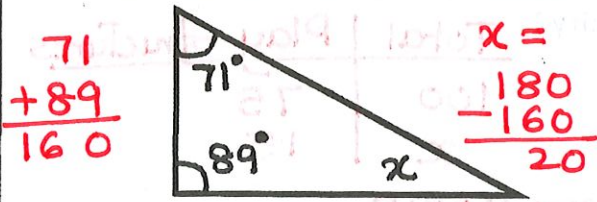 71
+89
160
71°
89°
x
x =
180
-160
20